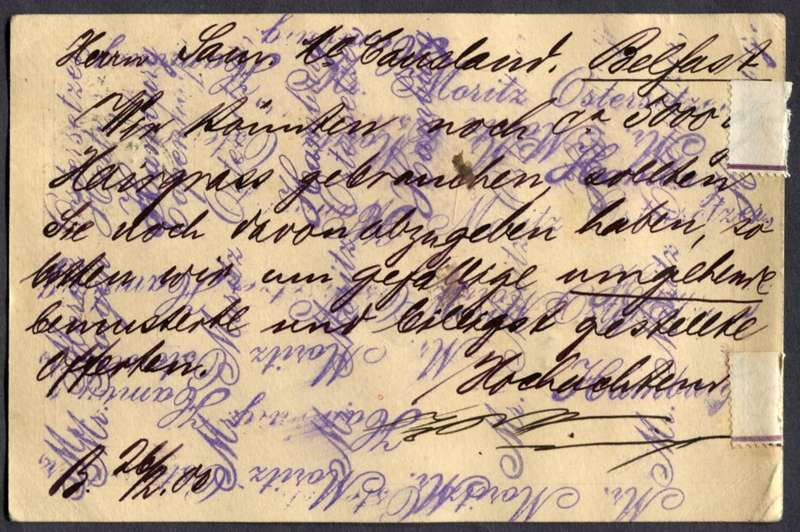 Herrn Sam. Mc Causland. Belfast
Wir könnten noch ca 5000
Hairgrass gebrauchen, sollten
Sie noch davon abzugeben haben, so
bitten wir um gefällige umgehende
bemusterte und billigst gestellte
Offerten.
Hochachtend
B. 26/2.00
M. Moritz
Hamburg